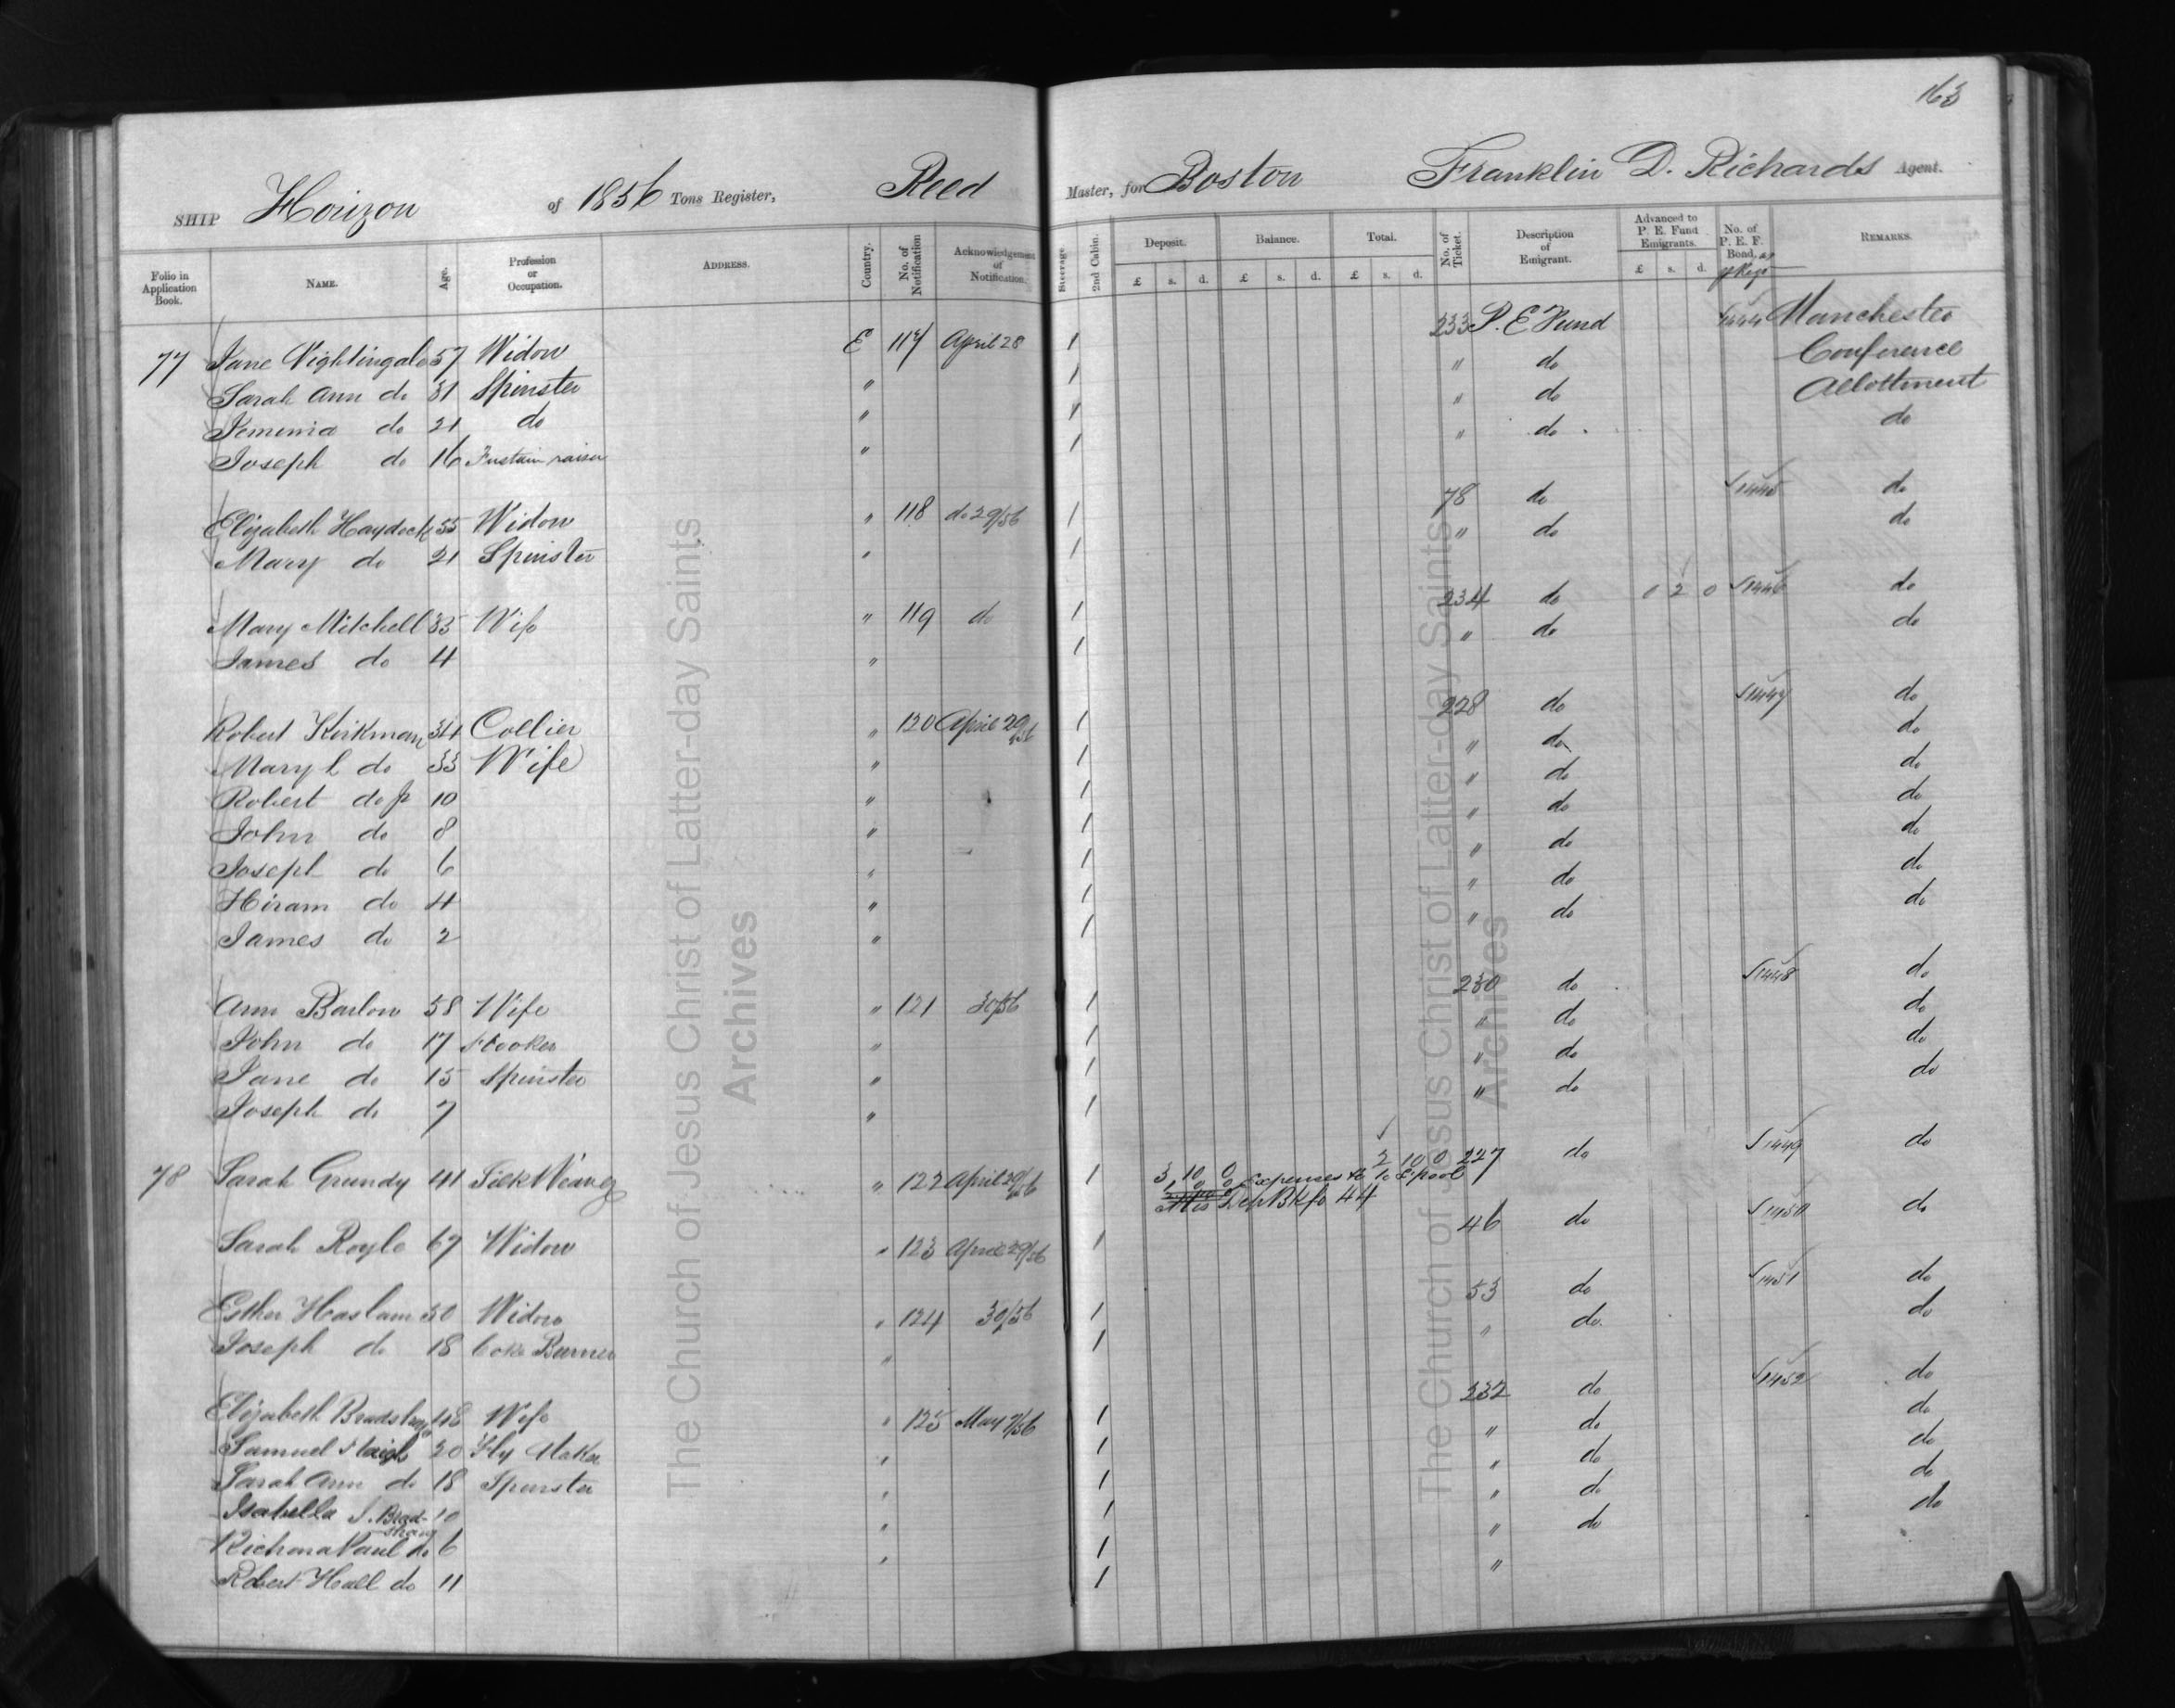 163
SHIP Horizon of 1856 Tons Register, Reed Master, for Boston Franklin D. Richards Agent.
Folio in Application Book. NAME. Age. Profession or Occupation. ADDRESS. Country. No. of Notification Acknowledgement of Notification. Steerage. 2nd Cabin. Deposit. £ s. d. Balance. £ s. d. Total. £ s. d. No. of Ticket. Description of Emigrant. Advanced to P. E. Fund Emigrants. £ s. d. No. of P. E. F. Bond. REMARKS.
77 Jane Nightingale 57 Widow E 117 April 28 1 233 P. E Fund 1444 Manchester
Sarah Ann do 31 Spinster " 1 " do Conference
Jemima do 21 do " 1 " do Allottment
Joseph do 16 Fustain raiser " 1 " do do
Elizabeth Haydock 55 Widow " 118 do 29/56 1 78 do 1445 do
Mary do 21 Spinster " 1 " do do
Mary Mitchell 35 Wife " 119 do 1 234 do 0 2 0 1446 do
James do 4 " 1 " do do
Robert Kirkman 34 Collier " 120 April 29/56 1 228 do 1447 do
Mary L do 33 Wife " 1 " do do
Robert do jr 10 " 1 " do do
John do 8 " 1 " do do
Joseph do 6 " 1 " do do
Hiram do 4 " 1 " do do
James do 2 " 1 " do do
Ann Barlow 58 Wife " 121 30/56 1 230 do 1448 do
John do 17 Hooker " 1 " do do
Jane do 15 Spinster " 1 " do do
Joseph do 7 " 1 " do do
78 Sarah Grundy 41 Silk Weaver " 122 April 29/56 1 3 10 0 2 10 0 227 do 1449 do
Expenses to L'pool
Dep Bk fo 44
Sarah Royle 67 Widow " 123 April 29/56 1 46 do 1450 do
Esther Haslam 50 Widow " 124 30/56 1 53 do 1451 do
Joseph do 18 Coke Burner " 1 " do do
Elizabeth Bradshaw 48 Wife " 125 May 1/56 1 232 do 1452 do
Samuel Haigh 20 Fly Maker " 1 " do do
Sarah Ann do 18 Spinster " 1 " do do
Isabella J. Bradshaw 10 " 1 " do do
Richard Paul do 6 " 1 " do do
Robert Hall do 11 1 "
The Church of Jesus Christ of Latter-day Saints
Archives
The Church of Jesus Christ of Latter-day Saints
Archives